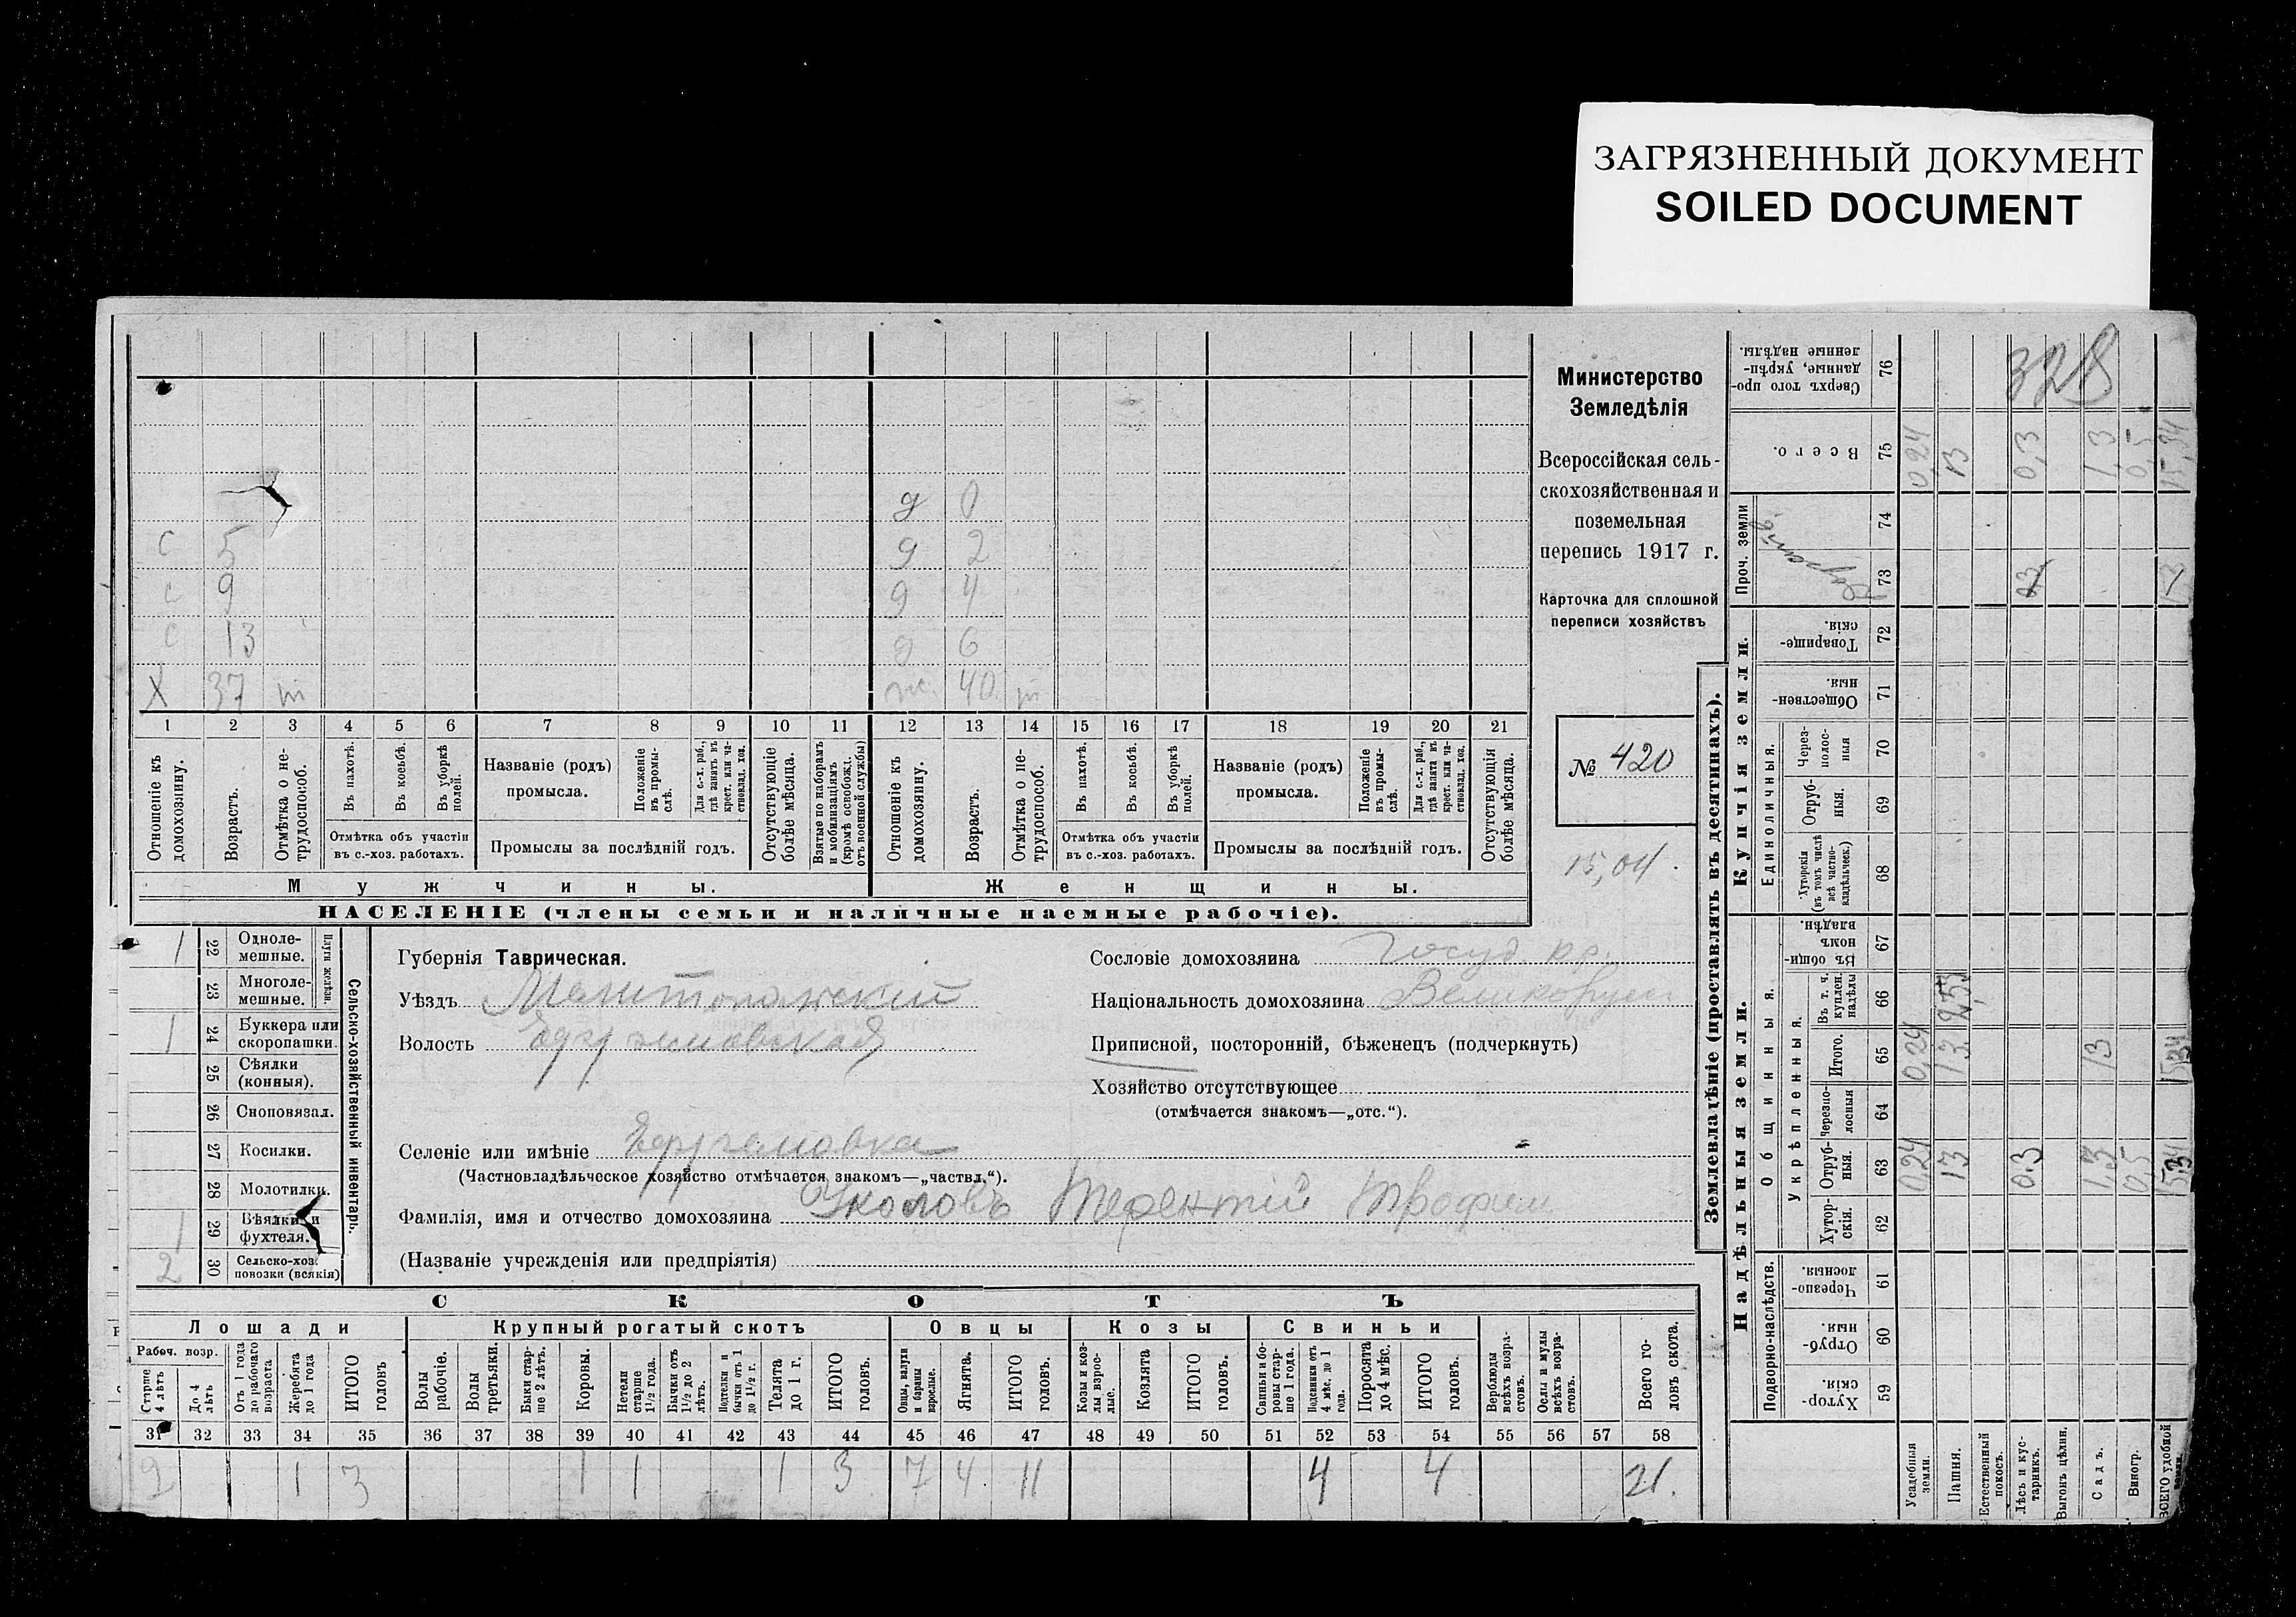 ЗАГРЯЗНЕННЫЙ ДОКУМЕНТ
SOILED DOCUMENT
д 0
с 5 д 2
с 9 д 4
с 13 д 6
X 37 ж. 40
1 2 3 4 5 6 7 8 9 10 11 12 13 14 15 16 17 18 19 20 21
Отношеніе къ домохозяину.
Возрастъ.
Отмѣтка о нетрудоспособ.
Въ пахотѣ.
Въ косьбѣ.
Въ уборкѣ полей.
Отмѣтка объ участіи
въ с.-хоз. работахъ.
Названіе (родъ)
промысла.
Положеніе въ промыслѣ.
Для с.-х. раб., гдѣ занятъ въ крест. или частновлад. хоз.
Промыслы за послѣдній годъ.
Отсутствующіе болѣе мѣсяца.
Взятые по наборамъ и мобилизаціямъ (кромѣ освобожд. отъ военной службы)
Отношеніе къ домохозяину.
Возрастъ.
Отмѣтка о нетрудоспособ.
Въ пахотѣ.
Въ косьбѣ.
Въ уборкѣ полей.
Отмѣтка объ участіи
въ с.-хоз. работахъ.
Названіе (родъ)
промысла.
Положеніе въ промыслѣ.
Для с.-х. раб., гдѣ занята въ крест. или частновлад. хоз.
Промыслы за послѣдній годъ.
Отсутствующія болѣе мѣсяца.
Мужчины. Женщины.
НАСЕЛЕНІЕ (члены семьи и наличные наемные рабочіе).
Министерство
Земледѣлія
Всероссійская сель-
скохозяйственная и
поземельная
перепись 1917 г.
Карточка для сплошной
переписи хозяйствъ
№ 420
15,04.
Сельско-хозяйственный инвентарь.
Плуги желѣзн.
1 22 Одноле-
мешные.
23 Многоле-
мешные.
1 24 Буккера или
скоропашки.
25 Сѣялки
(конныя).
26 Сноповязал.
27 Косилки.
28 Молотилки.
1 29 Вѣялки и
фухтеля.
2 30 Сельско-хоз.
повозки (всякія)
Губернія Таврическая.
Уѣздъ Мелитопольскій
Волость
Селеніе или имѣніе
(Частновладѣльческое хозяйство отмѣчается знакомъ—„частвл.“).
Фамилія, имя и отчество домохозяина Терентій Трофим
(Названіе учрежденія или предпріятія)
Сословіе домохозяина Госуд. кр.
Національность домохозяина Великорусс
Приписной, посторонній, бѣженецъ (подчеркнуть)
Хозяйство отсутствующее
(отмѣчается знакомъ—„отс.“).
СКОТЪ
Лошади Крупный рогатый скотъ Овцы Козы Свиньи
Рабоч. возр.
Старше 4 лѣтъ
До 4 лѣтъ
Отъ 1 года до рабочаго возраста
Жеребята до 1 года
ИТОГО головъ
Волы рабочіе.
Волы третьяки.
Быки старше 2 лѣтъ.
Коровы.
Нетели старше 1½ года.
Бычки отъ 1½ до 2 лѣтъ.
Подтелки и бычки отъ 1 до 1½ г.
Телята до 1 г.
ИТОГО головъ.
Овцы, валухи и бараны взрослые.
Ягнята.
ИТОГО головъ.
Козы и козлы взрослые.
Козлята
ИТОГО головъ.
Свиньи и боровы старше 1 года.
Подсвинки отъ 4 мѣс. до 1 года.
Поросята до 4 мѣс.
ИТОГО головъ.
Верблюды всѣхъ возрастовъ.
Ослы и мулы всѣхъ возрастовъ.
Всего головъ скота.
31 32 33 34 35 36 37 38 39 40 41 42 43 44 45 46 47 48 49 50 51 52 53 54 55 56 57 58
2 1 3 1 1 1 3 7 4 11 4 4 21.
Землевладѣніе (проставлять въ десятинахъ).
Надѣльныя земли. Купчія земли. Проч. земли
Подворно-наслѣдств.
Общинныя.
Укрѣпленныя.
Единоличныя.
Хуторскія. 59
Отрубныя. 60
Черезполосныя. 61
Хуторскія. 62
Отрубныя. 63
Черезполосныя 64
Итого. 65
Въ т. ч. куплен. надѣлы 66
Въ общинномъ владѣн. 67
Хуторскія (въ томъ числѣ всѣ частновладѣльческ.) 68
Отрубныя. 69
Черезполосныя 70
Общественныя. 71
Товарищескія. 72
73
74
Всего. 75
Сверхъ того проданные, укрѣпленные надѣлы. 76
328
Усадебныя земли. 0,24 0,24 0,24
Пашня. 13 13 13
Естественный покосъ.
Лѣсъ и кустарникъ. 0,3 0,3
Выгонъ цѣлин.
Садъ. 1,3 1,3 1,3
Виногр. 0,5 0,5
ВСЕГО удобной земли. 15,34 15,34 15,34